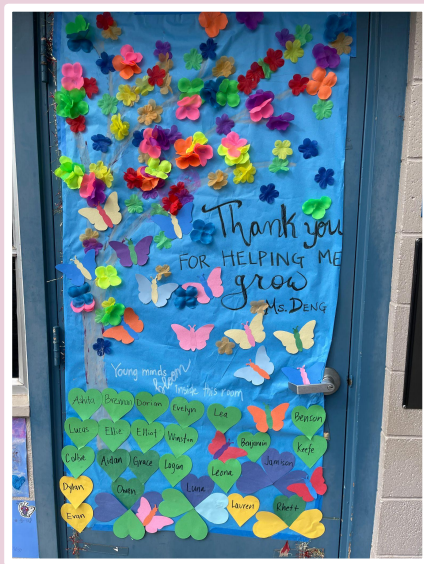 Thank you
FOR HELPING ME
grow
Ms. DENG
Young minds
bloom
inside this room
Ashita Brennan Dorian Evelyn Lea Benson
Lucas Ellie Elliot Winston Benjamin Keefe
Colbie Aidan Grace Logan Leona Jamison
Dylan Owen Luna Lauren Rhett
Evan